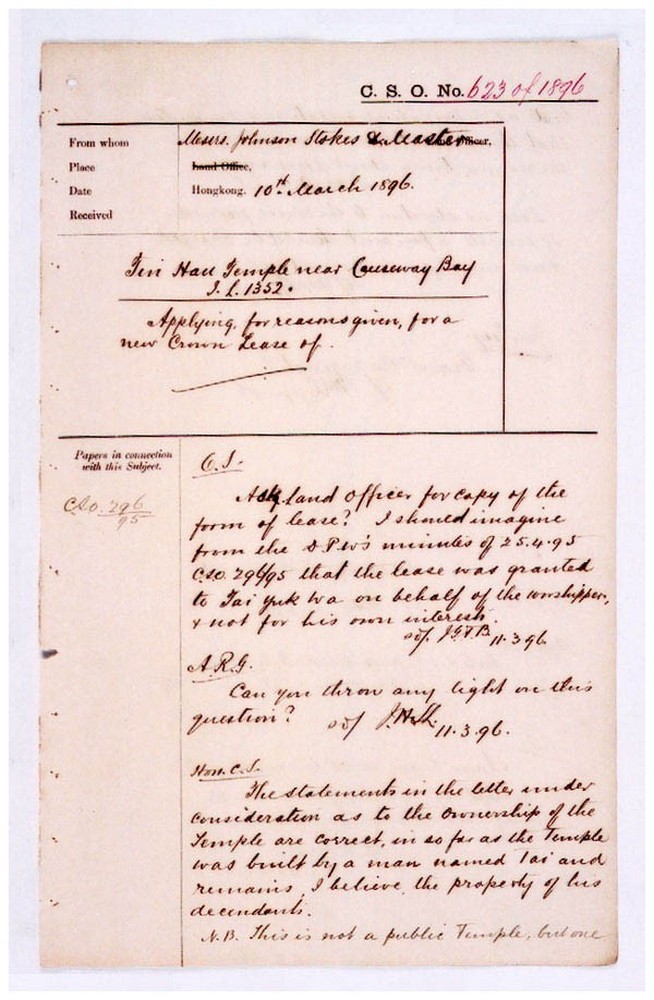 C. S. O. No. 623 of 1896
From whom Messrs. Johnson Stokes & Master Officer,
Place Land Office,
Date Hongkong. 10th March 1896.
Received
Tin Hau Temple near Causeway Bay
I. L. 1352.
Applying, for reasons given, for a
new Crown Lease of.
Papers in connection
with this Subject.
C.S.O. 296/95
C.S.
Ask Land Officer for copy of the
form of lease? I should imagine
from the D.P.W's minutes of 25.4.95
C.S.O. 296/95 that the lease was granted
to Tai Yuk Wa on behalf of the worshippers,
& not for his own interests.
sd/. 11.3.96
A.R.G.
Can you throw any light on this
question? sd/ 11.3.96.
Hon. C.S.
The statements in the letter under
consideration as to the ownership of the
Temple are correct, in so far as the Temple
was built by a man named Tai and
remains, I believe, the property of his
decendants.
N.B. This is not a public Temple, but one